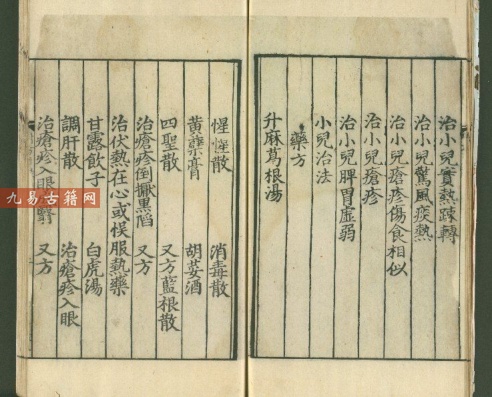 治小兒實熱踈轉
治小兒驚風痰熱
治小兒瘡疹傷食相似
治小兒瘡疹
治小兒脾胃虛弱
小兒治法
藥方
升麻葛根湯
惺惺散 消毒散
黃蘗膏 胡荽酒
四聖散 又方藍根散
治瘡疹倒擫黑陷 又方
治伏熱在心或悮服熱藥
甘露飲子 白虎湯
調肝散 治瘡疹入眼
治瘡疹入眼 翳 又方
九易古籍网